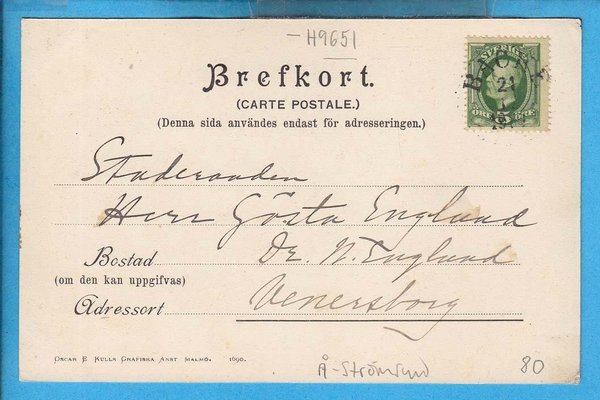 -H9651
Brefkort.
(CARTE POSTALE.)
(Denna sida användes endast för adresseringen.)
SVERIGE
BJURÅ
21
ÖRE ÖRE
Studeranden
Herr Gösta Englund
Bostad
Dr. N. Englund
(om den kan uppgifvas)
Adressort
Venersborg
OSCAR E. KULLS GRAFISKA ANST MALMÖ. 1690.
Å-Strömsund
80